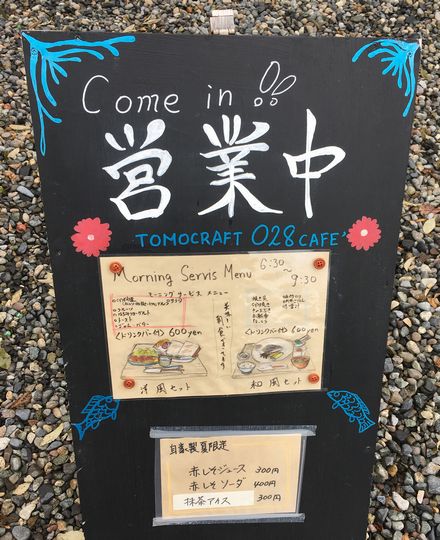 Come in
営業中
TOMOCRAFT 028 CAFE
Morning Servis Menu 6:30~9:30
モーニングサービスメニュー
美味しい朝食でえがおを
〈ドリンクバー付〉600yen
〈ドリンクバー付〉600yen
洋風セット
和風セット
自家製夏限定
赤しそジュース 300円
赤しそソーダ 400円
抹茶アイス 300円